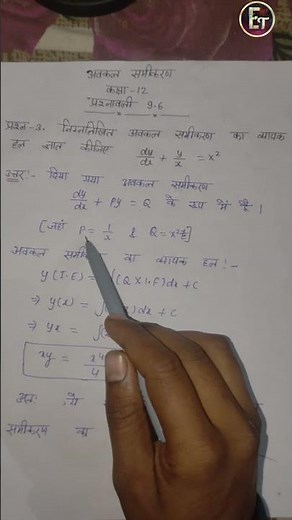 ET
अवकल समीकरण
कक्षा-12
प्रश्नावली 9.6
प्रश्न-3. निम्नलिखित अवकल समीकरण का व्यापक
हल ज्ञात कीजिए dy/dx + y/x = x²
उत्तर:- दिया गया अवकल समीकरण
dy/dx + Py = Q के रूप में है।
[जहां P = 1/x & Q = x²]
अवकल का व्यापक हल :-
y(I.F) = (Q x I.F) dx + C
⇒ y(x) = ∫ dx + C
⇒ yx = ∫
xy = x⁴/4
अतः ये
समीकरण का